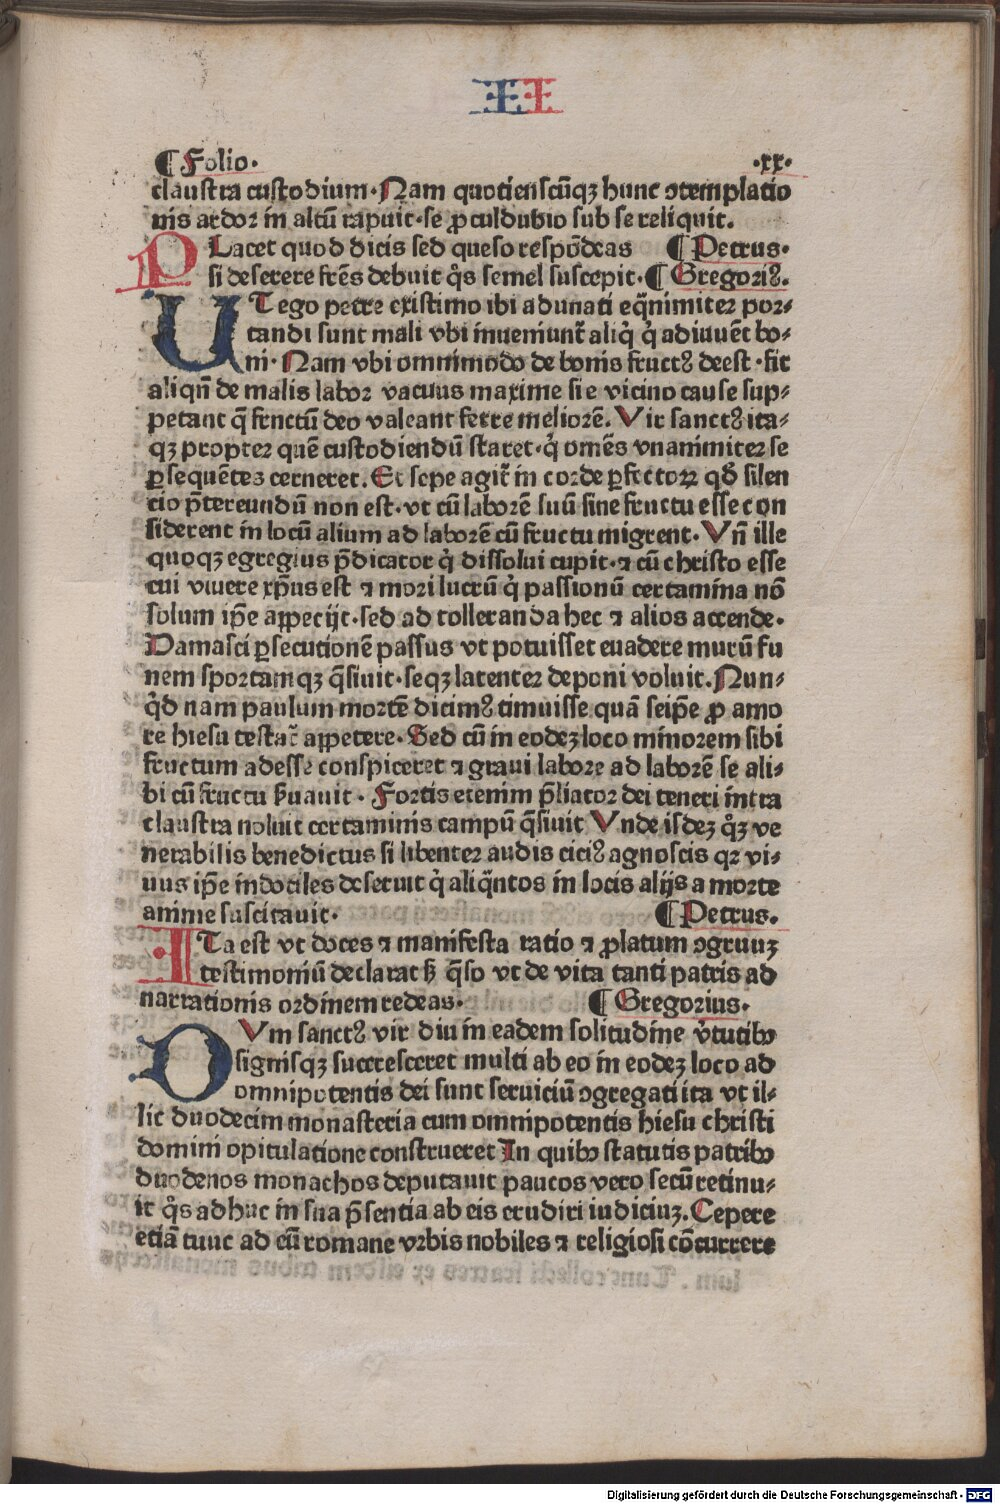 II
¶ Folio· ·xx·
claustra custodium·Nam quotienscūqꝫ hunc ↄtemplatio
nis ardor in altū rapuit·se ꝓculdubio sub se reliquit.
PLacet quod dicis sed queso respōdeas ¶ Petrus·
si deserere fr̄es debuit q̊s semel suscepit·¶ Gregoriꝰ.
UTego petre existimo ibi adunati eq̄nimiter por⸗
tandi sunt mali vbi inueniunt̄ aliq̇ q̇ adiuuēt bo⸗
ni·Nam vbi omnimodo de bonis fructꝰ deest·fit
aliqn̄ de malis labor vacuus maxime si e vicino cause sup⸗
petant q̄ frnctū deo valeant ferre meliorē.Vir sanctꝰ ita⸗
qꝫ propter quē custodiendū staret·q̇ omēs vnanimiter se
ꝑsequētes cerneret.Et sepe agit̄ in corde ꝑfectoꝝ qđ silen
cio p̄tereundū non est·vt cū laborē suū sine fructu esse con
siderent in locū alium ad laborē cū fructu migrent·Vn̄ ille
quoqꝫ egregius p̄dicator q̇ dissolui cupit·⁊ cū christo esse
cui viuere xp̄us est ⁊ mori lucrū q̇ passionū certamina nō
solum ip̄e appecijt·sed ad tolleranda hec ⁊ alios accende·
Damasci ꝑsecutionē passus vt potuisset euadere murū fu
nem sportamqꝫ q̄siuit·seqꝫ latenter deponi voluit.Nun⸗
q̇d nam paulum mortē dicimꝰ timuisse quā seip̄e ꝓ amo
re hiesu testat̄ appetere·Sed cū in eodeꝫ loco minorem sibi
fructum adesse conspiceret ⁊ graui labore ad laborē se ali⸗
bi cū fructu ẜuauit·Fortis etenim p̄liator dei teneri intra
claustra noluit certaminis campū q̄siuit Vnde isdeꝫ q̊ꝫ ve
nerabilis benedictus si libenter audis ciciꝰ agnoscis qꝛ vi⸗
uus ip̄e indociles deseruit q̇ aliq̄ntos in locis alijs a morte
anime suscitauit· ¶ Petrus.
ITa est vt doces ⁊ manifesta ratio ⁊ ꝓlatum ↄgruuꝫ
testimoniū declarat ẜꝫ q̄so vt de vita tanti patris ad
narrationis ordinem redeas· ¶ Gregorius·
DVm sanctꝰ vir diu in eadem solitudine v̓tutibꝰ
signisqꝫ succresceret multi ab eo in eodeꝫ loco ad
omnipotentis dei sunt seruiciū ↄgregati ita vt il⸗
lic duodecim monasteria cum omnipotentis hiesu christi
domini opitulatione construeret In quibꝰ statutis patribꝰ
duodenos monachos deputauit paucos vero secū retinu⸗
it q̊s adhuc in sua p̄sentia ab eis erudiri iudiciuꝫ.Cepere
etiā tunc ad eū romane vrbis nobiles ⁊ religiosi cōcurrere
Digitalisierung gefördert durch die Deutsche Forschungsgemeinschaft - DFG